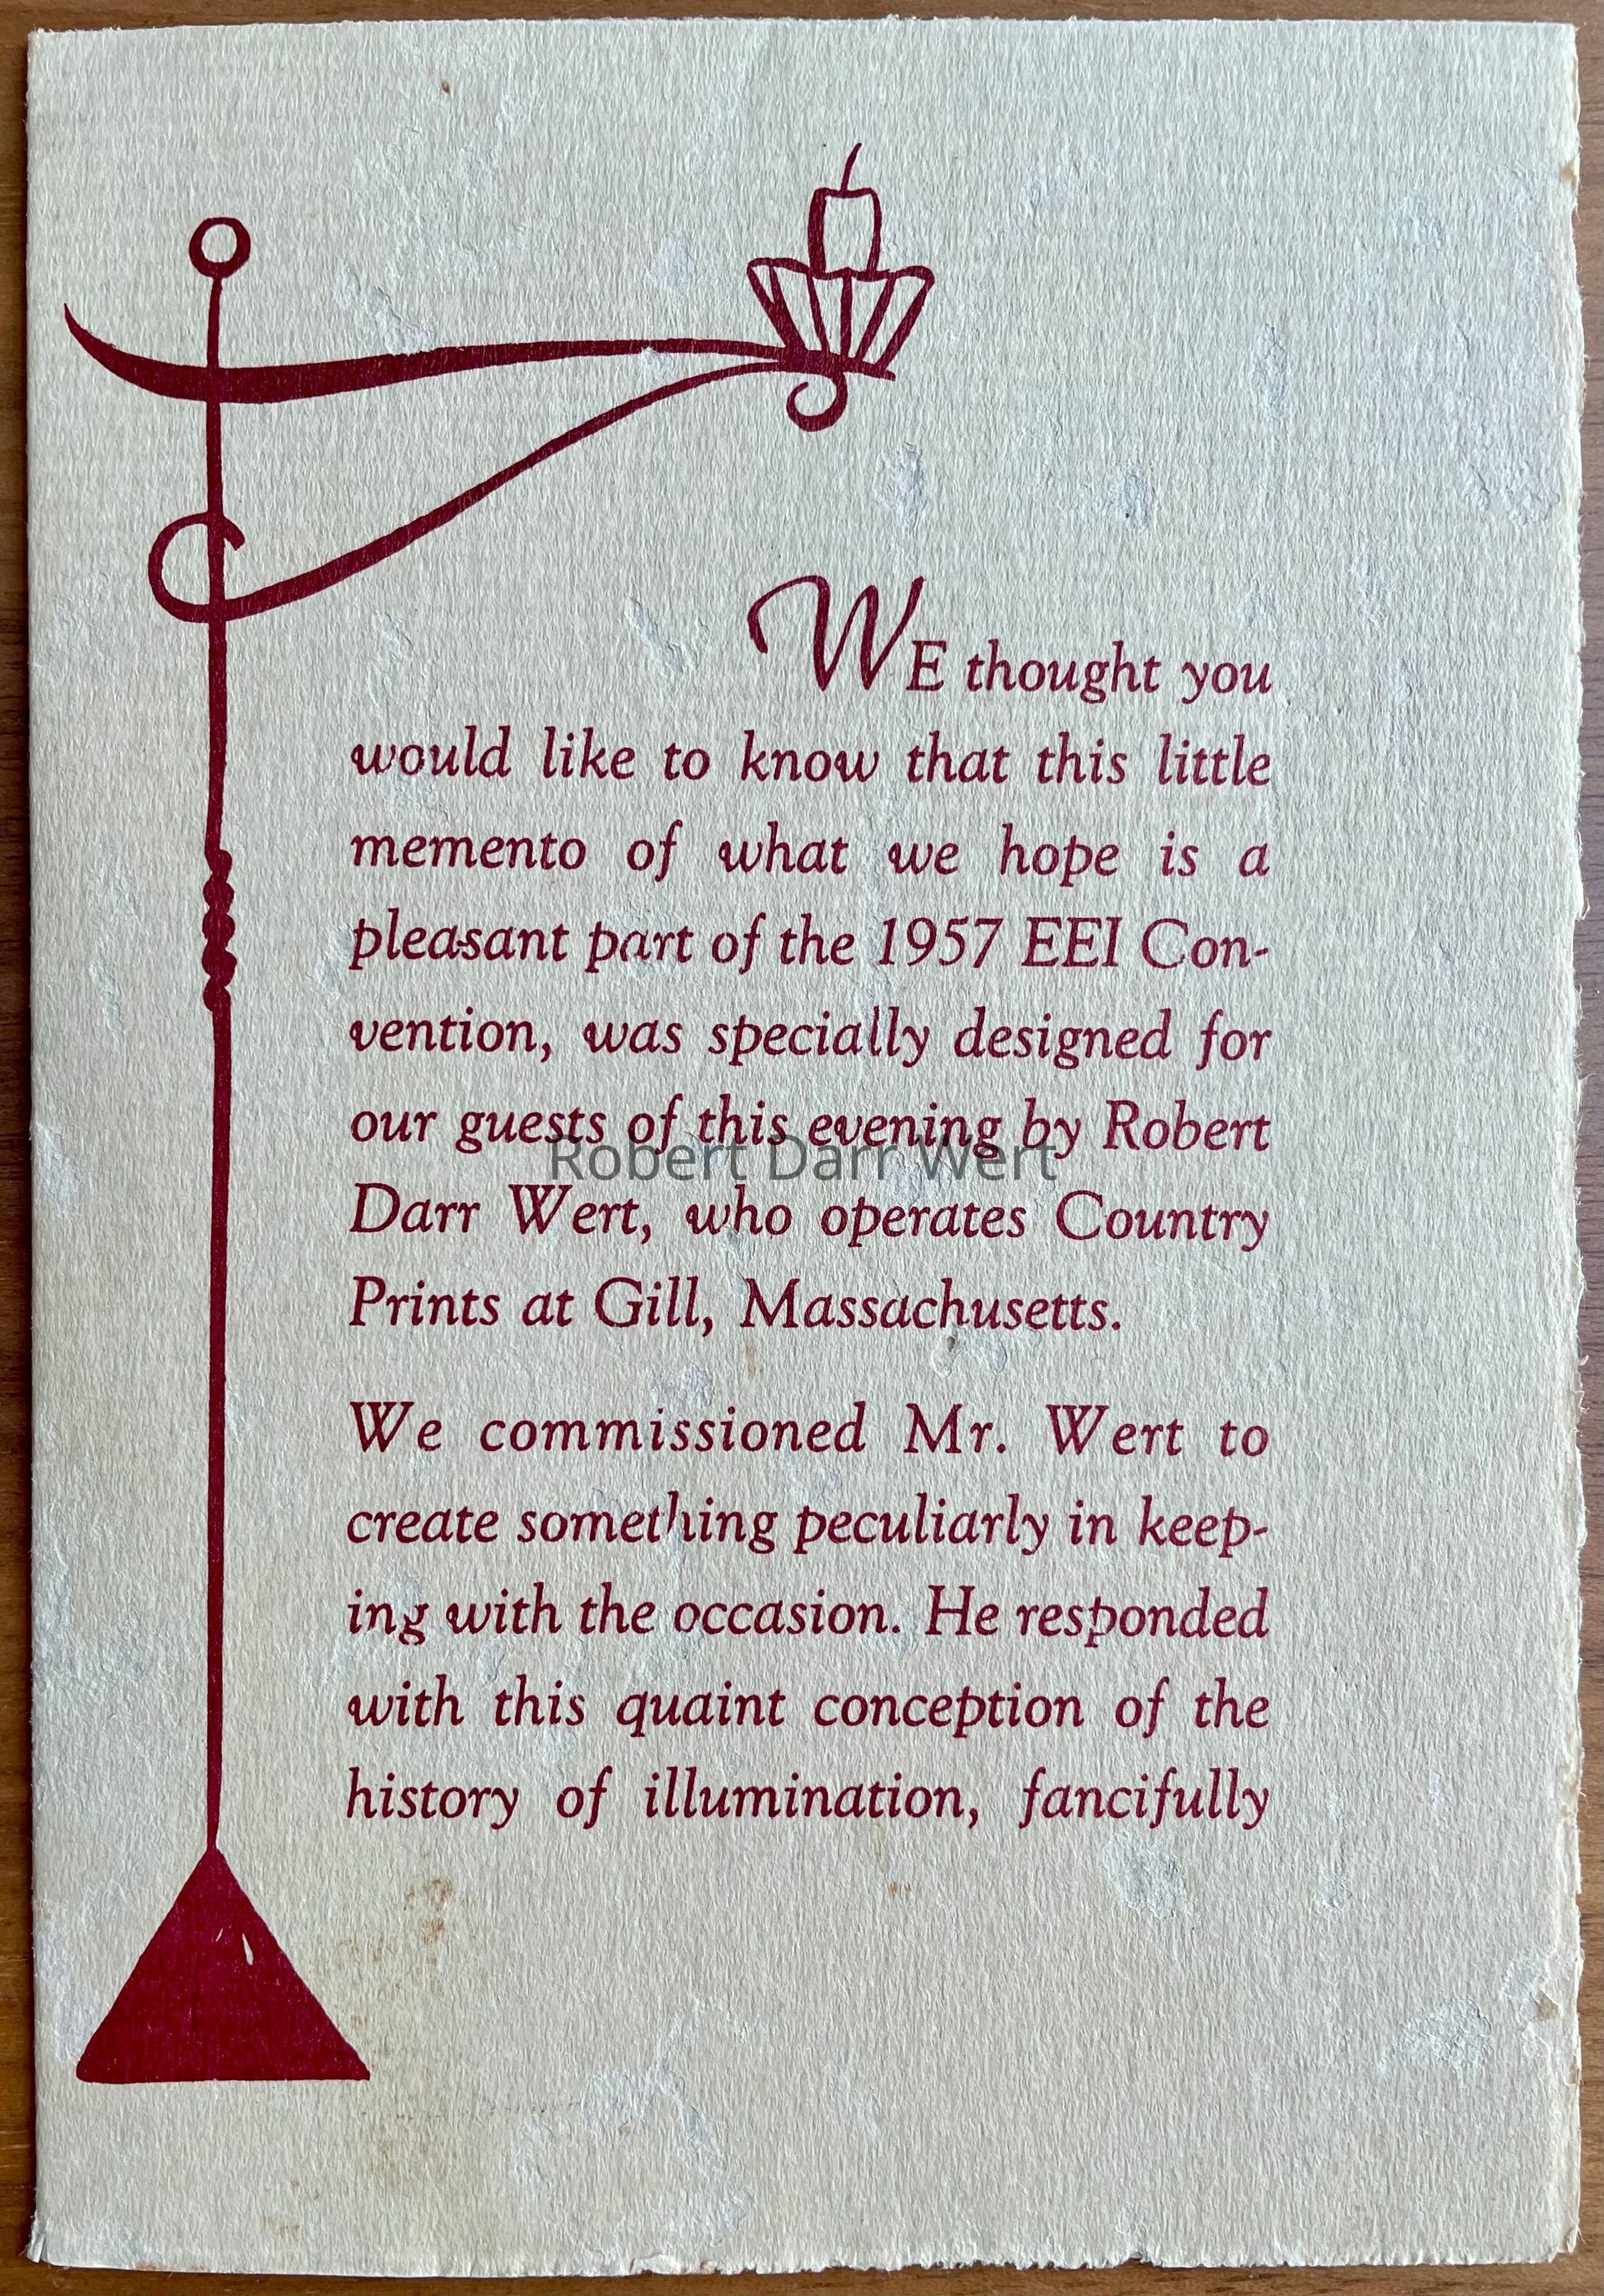 WE thought you
would like to know that this little
memento of what we hope is a
pleasant part of the 1957 EEI Con-
vention, was specially designed for
our guests of this evening by Robert
Robert Darr Wert
Darr Wert, who operates Country
Prints at Gill, Massachusetts.
We commissioned Mr. Wert to
create something peculiarly in keep-
ing with the occasion. He responded
with this quaint conception of the
history of illumination, fancifully